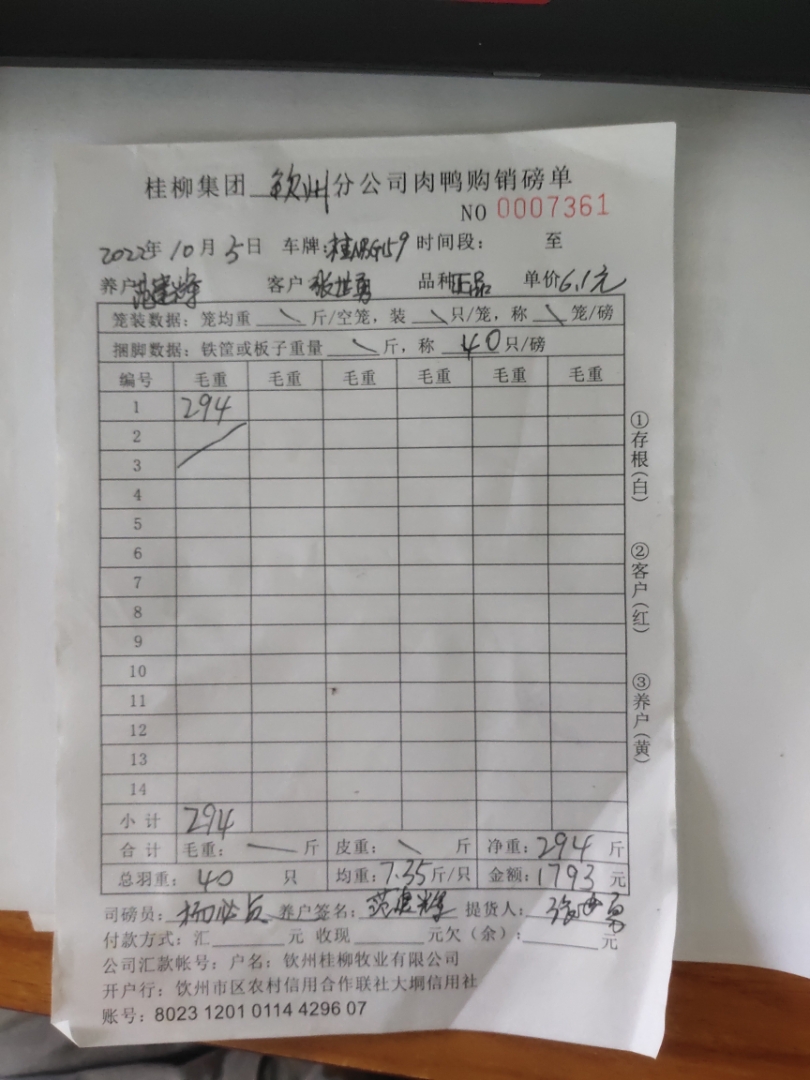 桂柳集团 钦州 分公司肉鸭购销磅单
NO 0007361
2022年 10月 5日 车牌: 时间段: 至
养户 客户 张世勇 品种 正品 单价 6.1元
笼装数据:笼均重 \ 斤/空笼,装 \ 只/笼,称 \ 笼/磅
捆脚数据:铁筐或板子重量 \ 斤,称 40 只/磅
编号 毛重 毛重 毛重 毛重 毛重 毛重
1 294
2
3
4
5
6
7
8
9
10
11
12
13
14
小计 294
合计 毛重: 斤 皮重: \ 斤 净重: 294 斤
总羽重: 40 只 均重: 7.35 斤/只 金额: 1793 元
司磅员: 养户签名: 提货人:
付款方式:汇 元 收现 元欠(余): 元
公司汇款帐号:户名:钦州桂柳牧业有限公司
开户行:钦州市区农村信用合作联社大垌信用社
账号:8023 1201 0114 4296 07
①存根(白)
②客户(红)
③养户(黄)